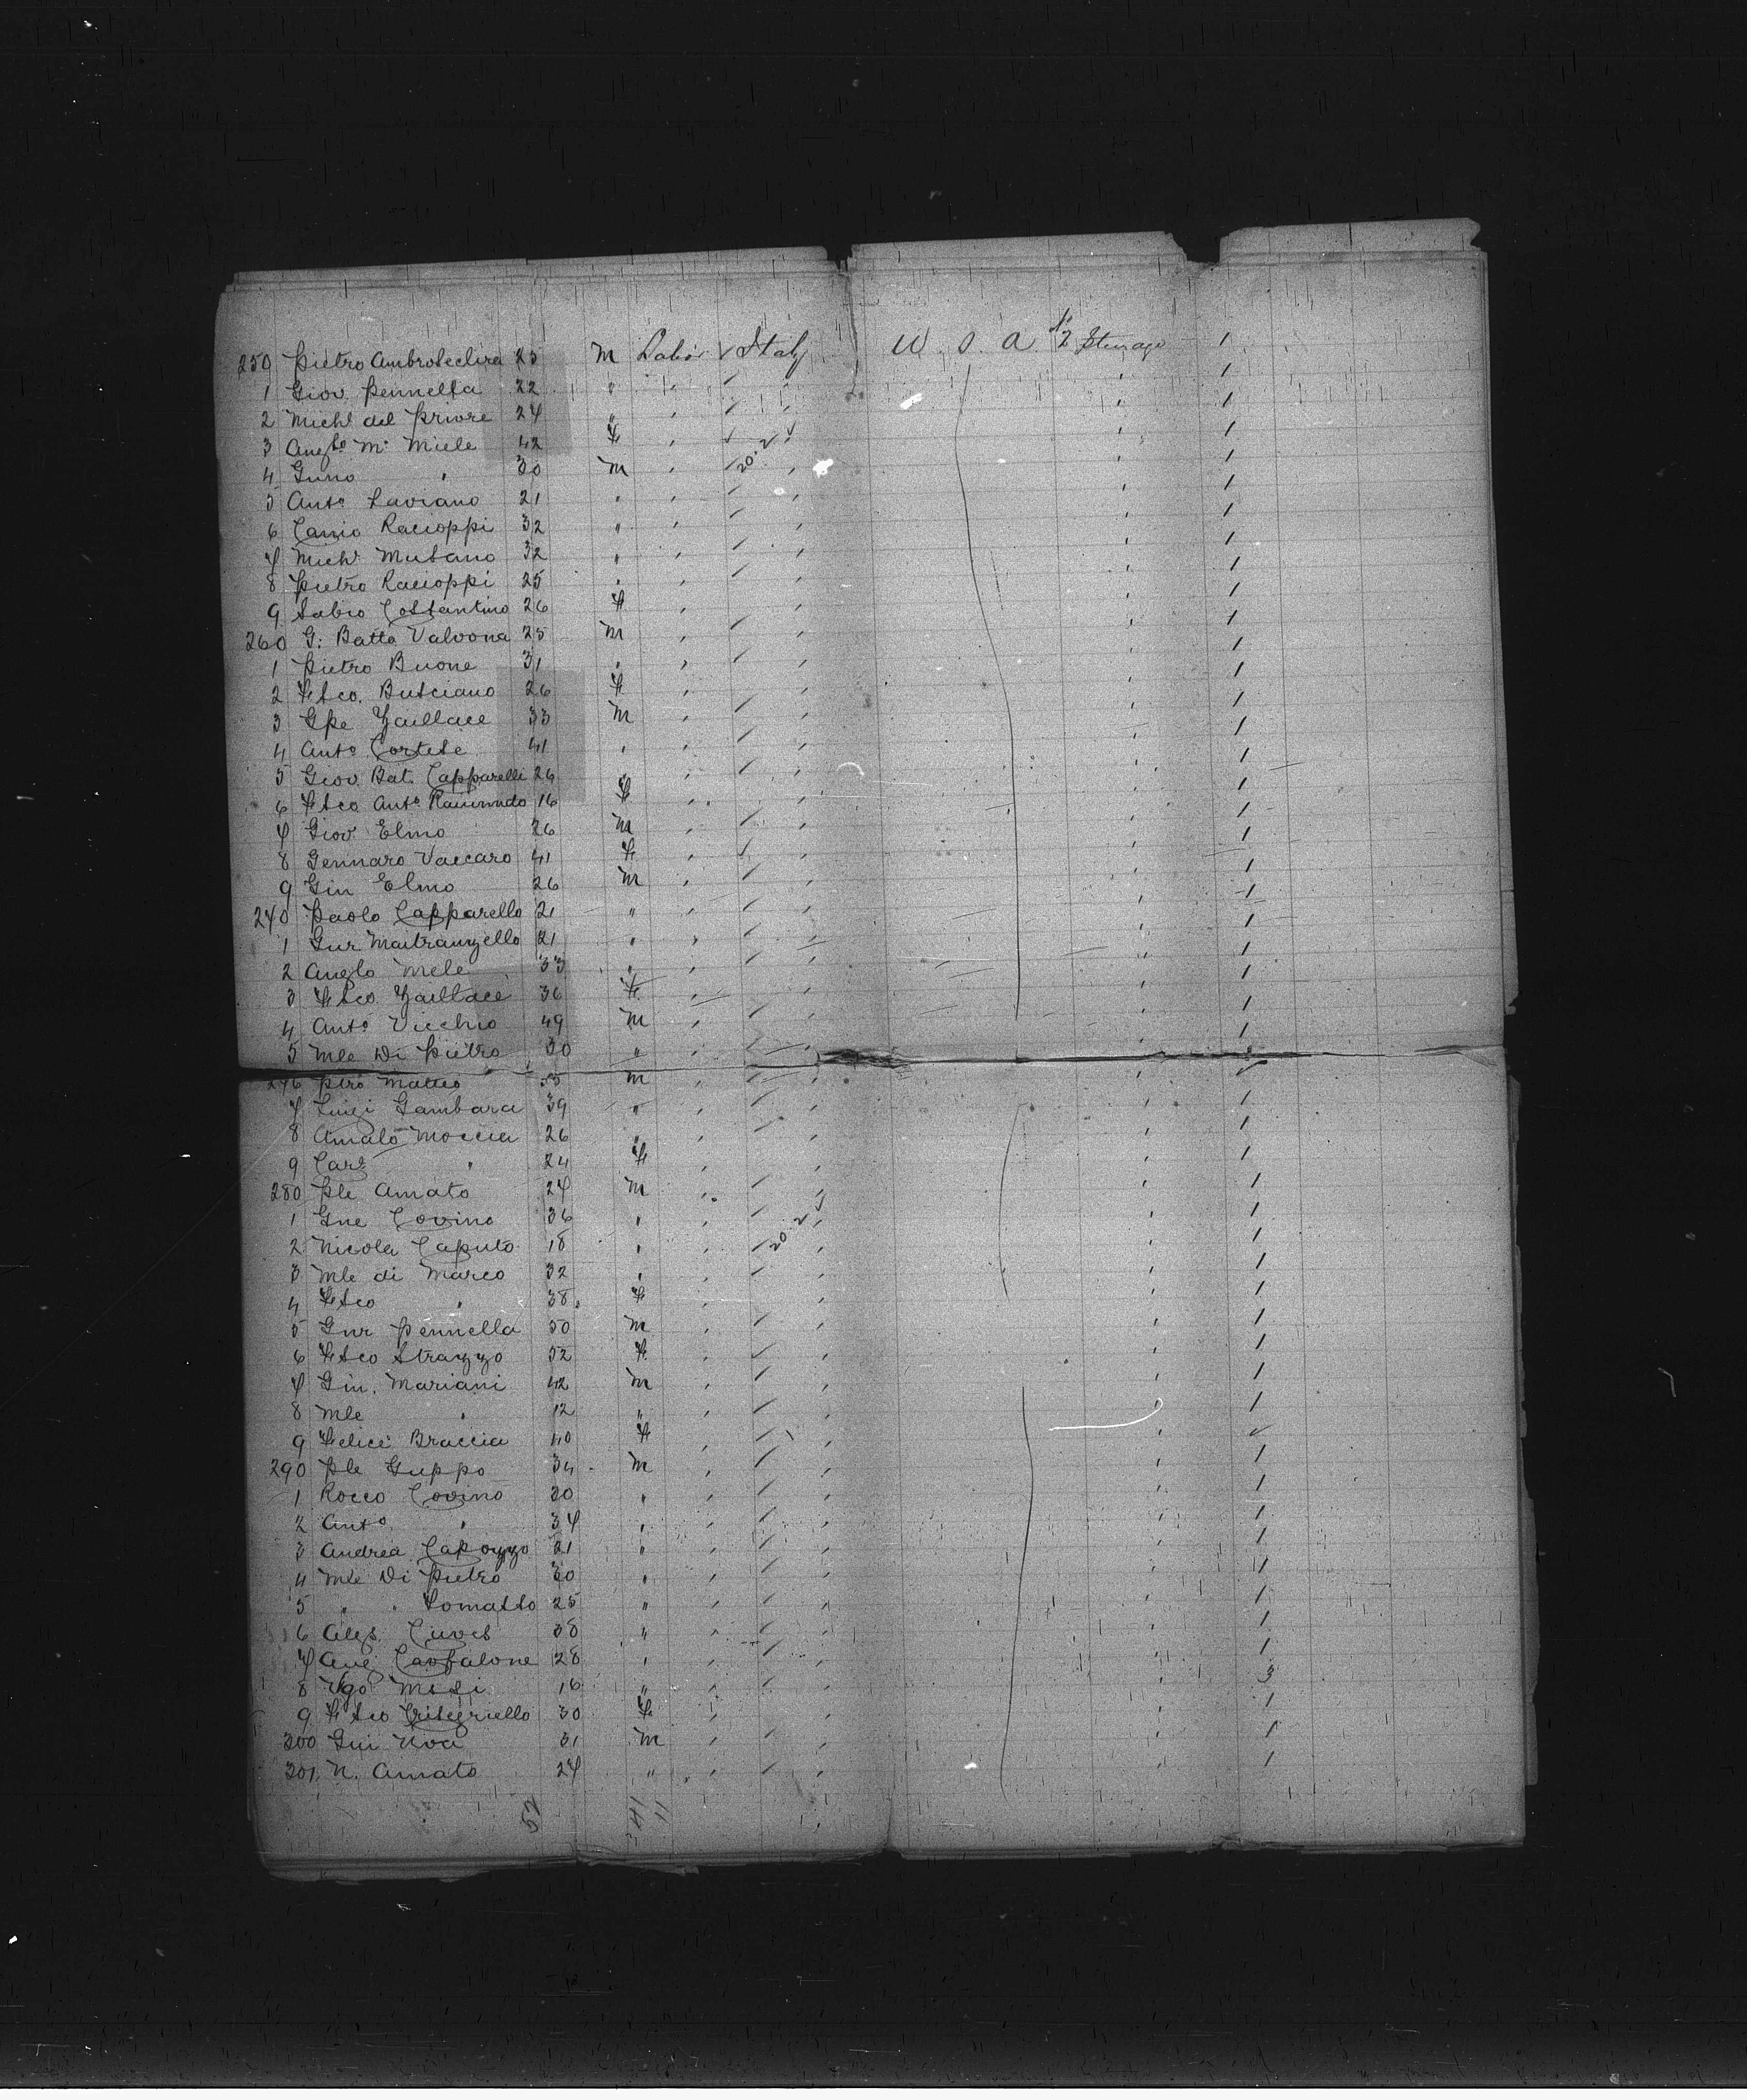 250 Pietro Ambrosechia 25 M Labor ✓ Italy U. S. A No 2 Steerage 1
1 Giov. Pennella 22 " ' ' ' ' 1
2 Michl del Priore 24 " ' ' ' ' 1
3 Anglo M. Miele 42 F ' ' ' ' 1
4 Gnno " 30 M ' 20.2 ' ' 1
5 Anto Laviano 21 " ' ' ' ' 1
6 Canio Racioppi 32 " ' ' ' ' 1
7 Michl Musano 32 " ' ' ' ' 1
8 Pietro Racioppi 25 " ' ' ' ' 1
9 Sabio Costantino 26 F ' ' ' ' 1
260 G. Batta Valvona 25 M ' ' ' ' 1
1 Pietro Buone 31 " ' ' ' ' 1
2 Fsco. Busciano 26 F ' ' ' ' 1
3 Gpe Zaillace 33 M ' ' ' ' 1
4 Anto Cortese 41 " ' ' ' ' 1
5 Giov. Bat. Capparelli 26 ' ' ' ' 1
6 Fsco Anto Raimondo 16 F ' ' ' ' 1
7 Giov. Elmo 26 M ' ' ' ' 1
8 Gennaro Vaccaro 41 F ' ' ' ' 1
9 Gin Elmo 26 M ' ' ' ' 1
270 Paolo Capparello 21 " ' ' ' ' 1
1 Gnr Maitranzello 21 " ' ' ' ' 1
2 Anglo Mele 33 " ' ' ' ' 1
3 Fsco Zaillace 36 F ' ' ' ' 1
4 Anto Vicchio 49 M ' ' ' ' 1
5 Mle Di Pietro 30 " ' ' ' ' 1
276 Ptro Matteo 35 M ' ' ' ' ✓
7 Luigi Gambara 39 " ' ' ' ' 1
8 Amato Moccia 26 " ' ' ' ' 1
9 Caro " 24 F ' ' ' ' 1
280 Ple Amato 27 M ' ' ' ' 1
1 Gne Covino 36 " ' ' ' ' 1
2 Nicola Caputo 18 " ' 20.2 ' ' 1
3 Mle di Marco 32 " ' ' ' ' 1
4 Fsco " 38 F ' ' ' ' 1
5 Gnr Pennella 50 M ' ' ' ' 1
6 Fsco Strazzo 52 F ' ' ' ' 1
7 Gin. Mariani 42 M ' ' ' ' 1
8 Mle " 12 " ' ' ' ' 1
9 Felice Braccia 40 F ' ' ' ' ✓
290 Ple Guppo 34 M ' ' ' ' 1
1 Rocco Covino 30 " ' ' ' ' 1
2 Anto " 37 " ' ' ' ' 1
3 Andrea Capozzo 21 " ' ' ' ' 1
4 Mle Di Pietro 30 " ' ' ' ' 1
5 " " Tomasso 25 " ' ' ' ' 1
6 Ales. 38 " ' ' ' ' 1
7 Ang. 28 " ' ' ' ' 1
8 Ugo Masi 16 " ' ' ' ' 3
9 Fsco 30 F ' ' ' ' 1
300 Gui 31 M ' ' ' ' 1
301 N. Amato 27 " ' ' ' ' 1